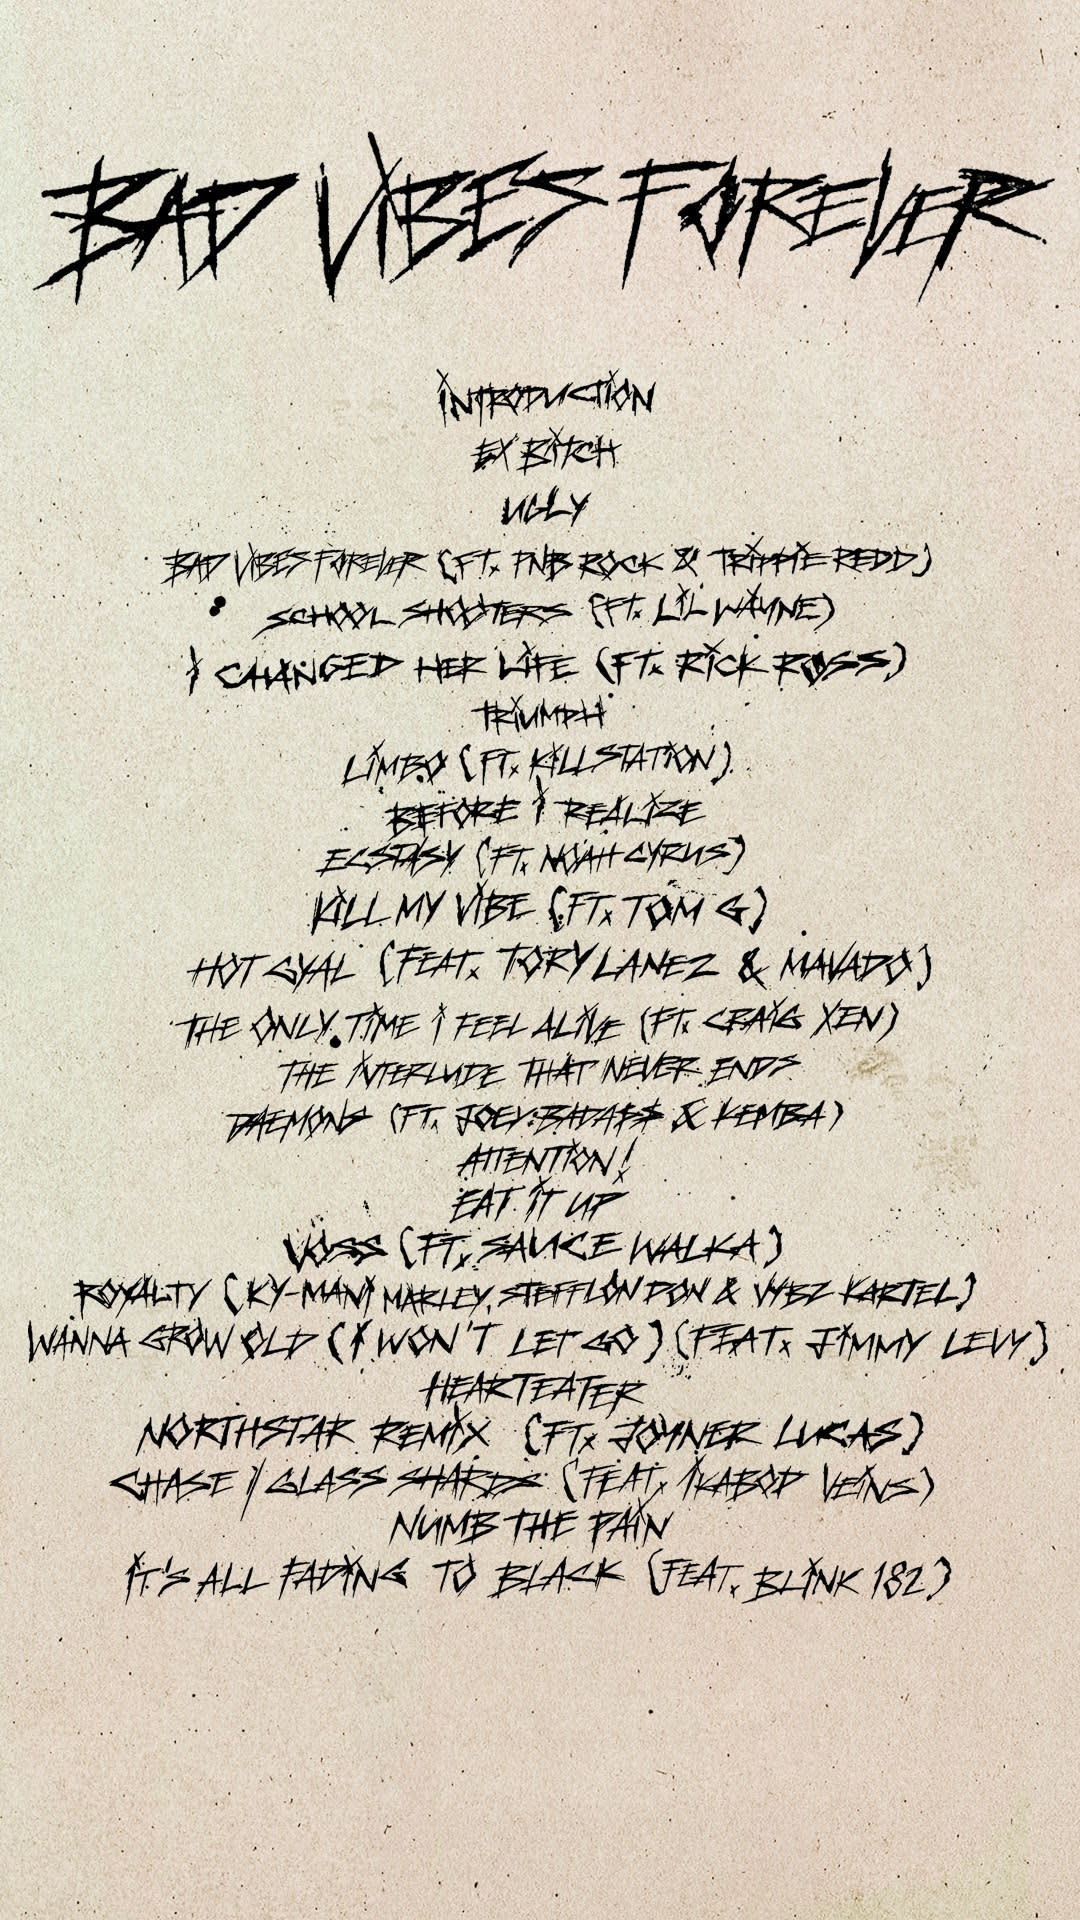 BAD VIBES FOREVER
INTRODUCTION
EX BITCH
UGLY
BAD VIBES FOREVER (FT. PNB ROCK & TRIPPIE REDD)
SCHOOL SHOOTERS (FT. LIL WAYNE)
I CHANGED HER LIFE (FT. RICK ROSS)
TRIUMPH
LIMBO (FT. KILLSTATION)
BEFORE I REALIZE
ECSTASY (FT. NOAH CYRUS)
KILL MY VIBE (FT. TOM G)
HOT GYAL (FEAT. TORY LANEZ & MAVADO)
THE ONLY TIME I FEEL ALIVE (FT. CRAIG XEN)
THE INTERLUDE THAT NEVER ENDS
DAEMONS (FT. JOEY BADA$$ & KEMBA)
ATTENTION!
EAT IT UP
VOSS (FT. SAUCE WALKA)
ROYALTY (KY-MANI MARLEY, STEFFLON DON & VYBZ KARTEL)
WANNA GROW OLD (I WON'T LET GO) (FEAT. JIMMY LEVY)
HEARTEATER
NORTHSTAR REMIX (FT. JOYNER LUCAS)
CHASE / GLASS SHARDS (FEAT. IKABOD VEINS)
NUMB THE PAIN
IT'S ALL FADING TO BLACK (FEAT. BLINK 182)